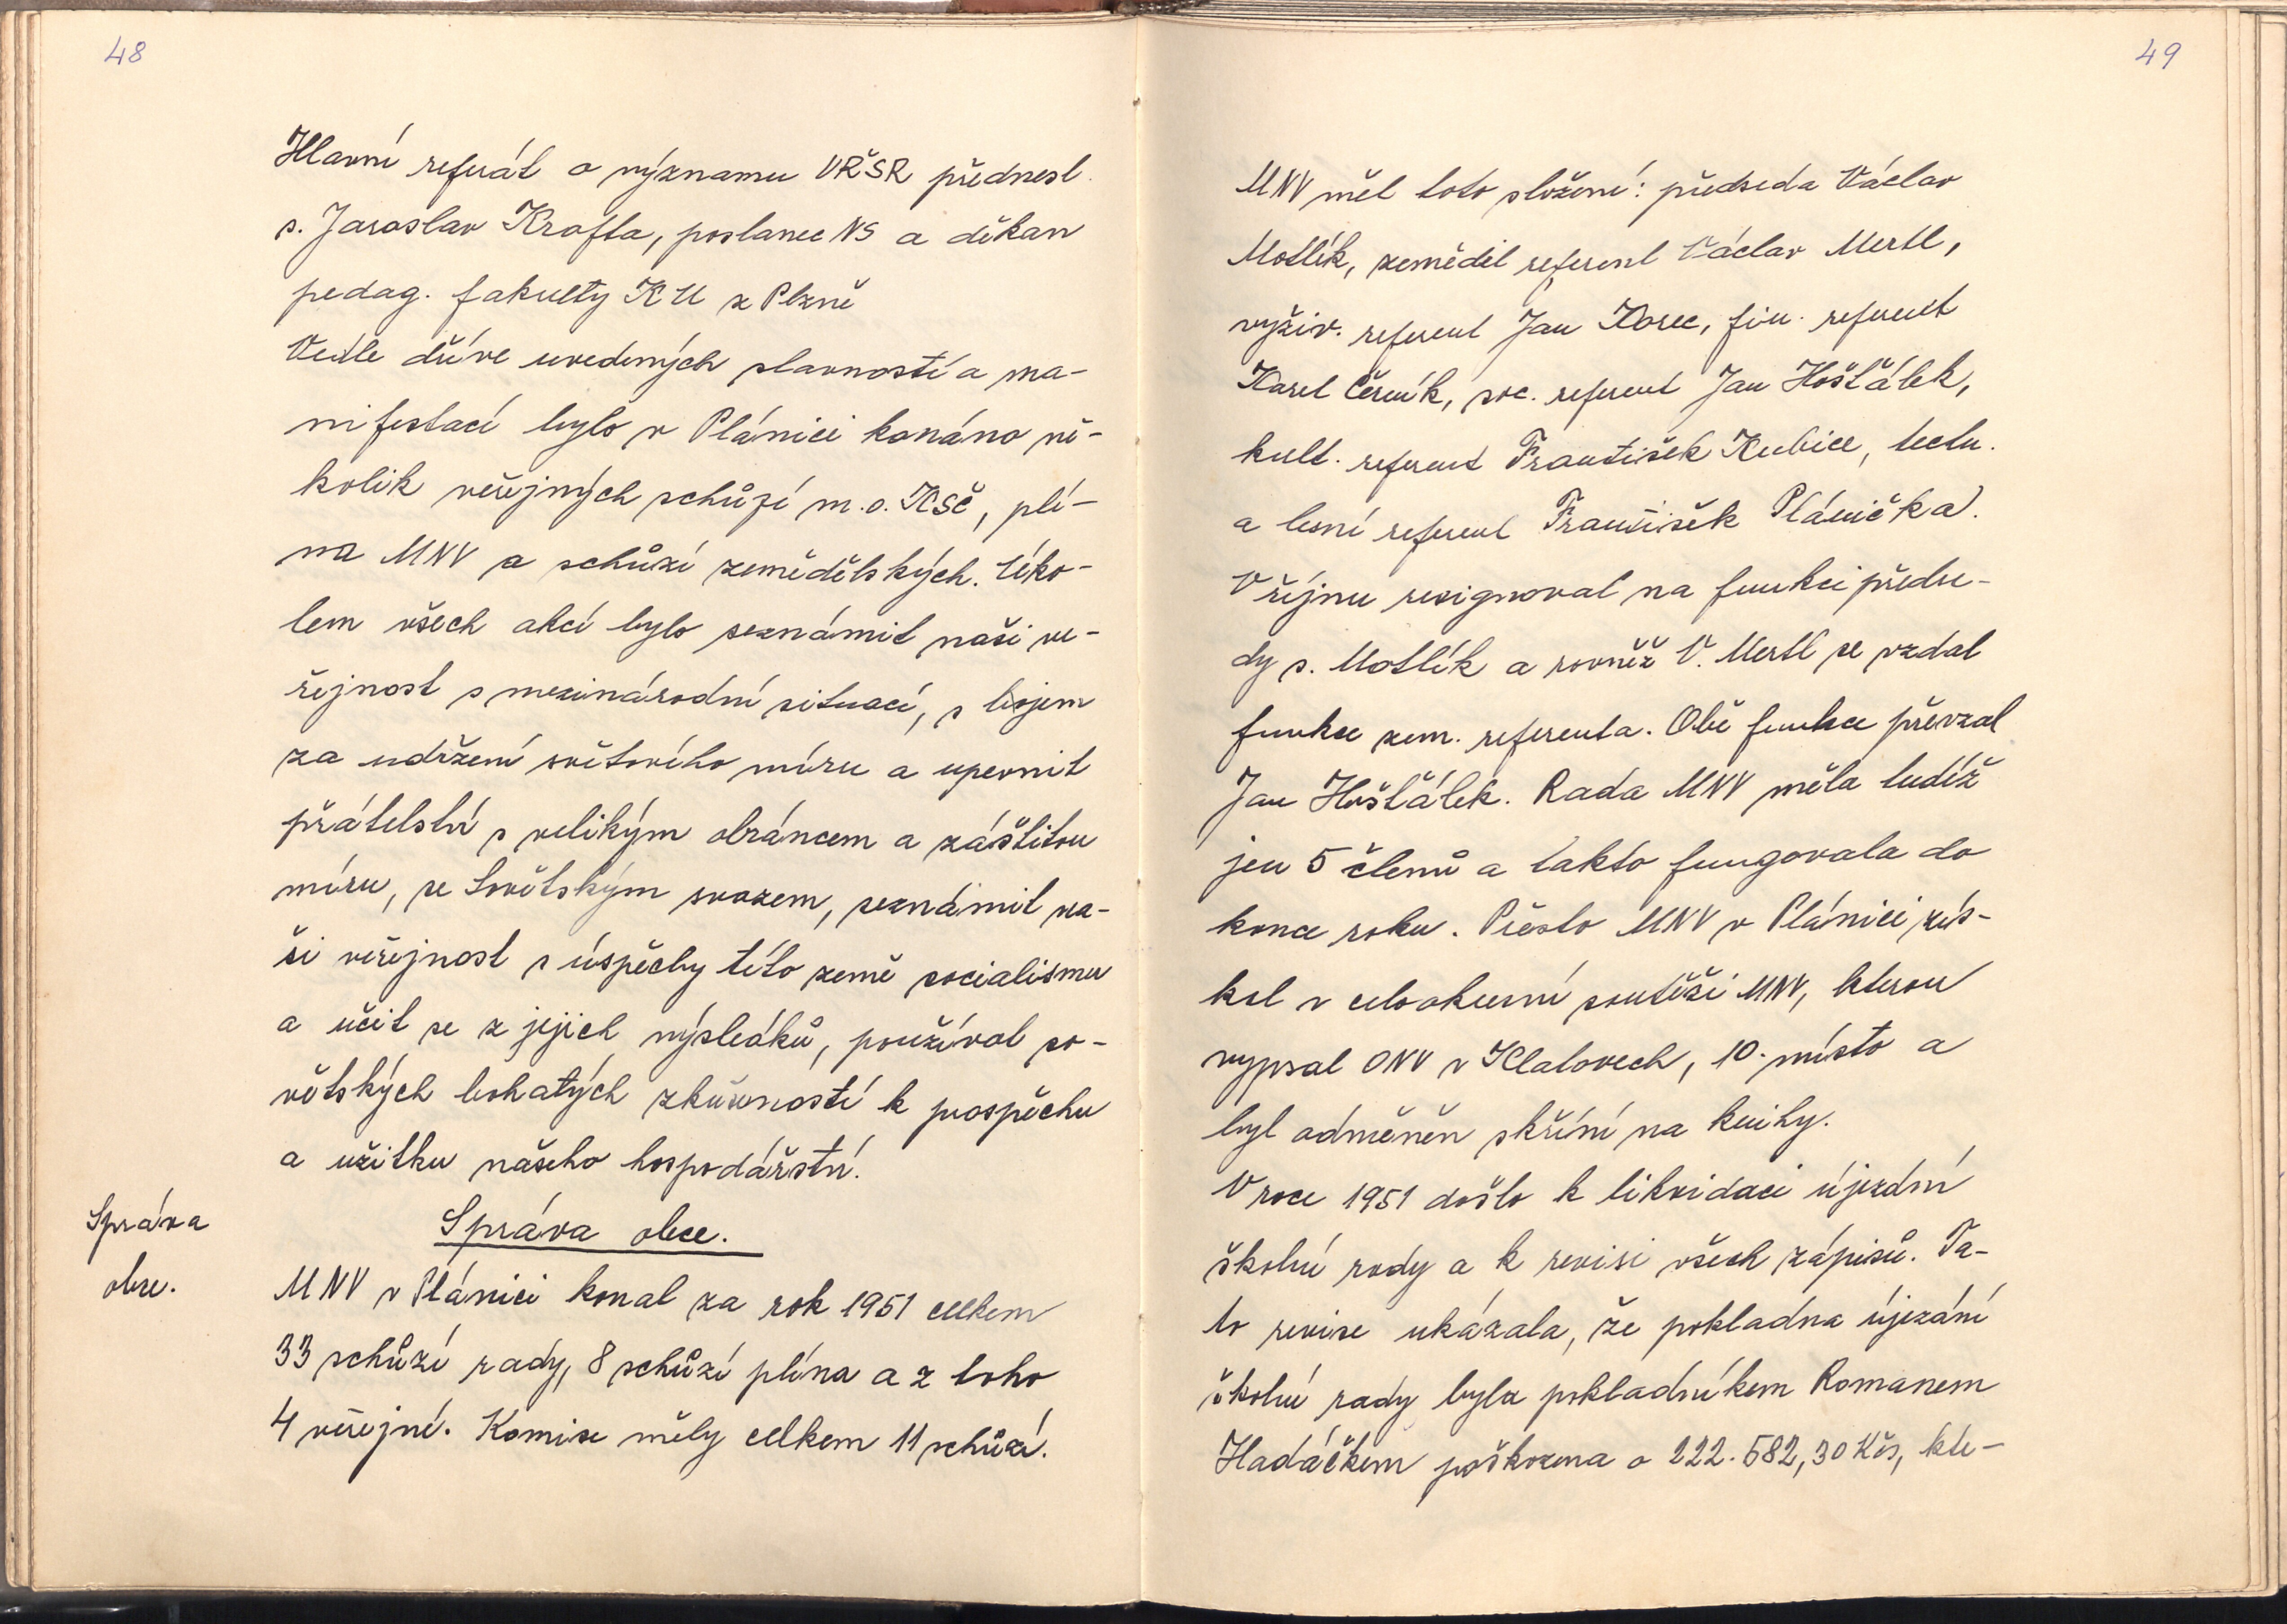 48
Hlavní referát o významu VŘSR přednesl
s. Jaroslav Krofta, poslanec NS a děkan
pedag. fakulty KU z Plzně
Vedle dříve uvedených slavností a ma-
nifestací bylo v Plánici konáno ně-
kolik veřejných schůzí m.o. KSČ, plé-
na MNV a schůzí zemědělských. Úko-
lem všech akcí bylo seznámit naši ve-
řejnost s mezinárodní situací, s bojem
za udržení světového míru a upevnit
přátelství s velikým obráncem a záštitou
míru, se Sovětským svazem, seznámit na-
ši veřejnost s úspěchy této země socialismu
a učit se z jejich výsledků, používat so-
větských bohatých zkušeností k prospěchu
a užitku našeho hospodářství.
Správa
obce.
Správa obce.
MNV v Plánici konal za rok 1951 celkem
33 schůzí rady, 8 schůzí pléna a z toho
4 veřejné. Komise měly celkem 11 schůzí.
49
MNV měl toto složení: předseda Václav
Motlík, zeměděl referent Václav Mertl,
výživ. referent Jan Korec, fin. referent
Karel Černík, soc. referent Jan Hošťálek,
kult. referent František Kubice, techn.
a lesní referent František Plánička.
V říjnu resignoval na funkci předse-
dy s. Motlík a rovněž V. Mertl se vzdal
funkce zem. referenta. Obě funkce převzal
Jan Hošťálek. Rada MNV měla tudíž
jen 5 členů a takto fungovala do
konce roku. Přesto MNV v Plánici zís-
kal v celookresní soutěži MNV, kterou
vypsal ONV v Klatovech, 10. místo a
byl odměněn skříní na knihy.
V roce 1951 došlo k likvidaci újezdní
školní rady a k revisi všech zápisů. Ta-
to revise ukázala, že pokladna újezdní
školní rady byla pokladníkem Romanem
Hadáčkem poškozena o 222.582,30 Kčs, kte-